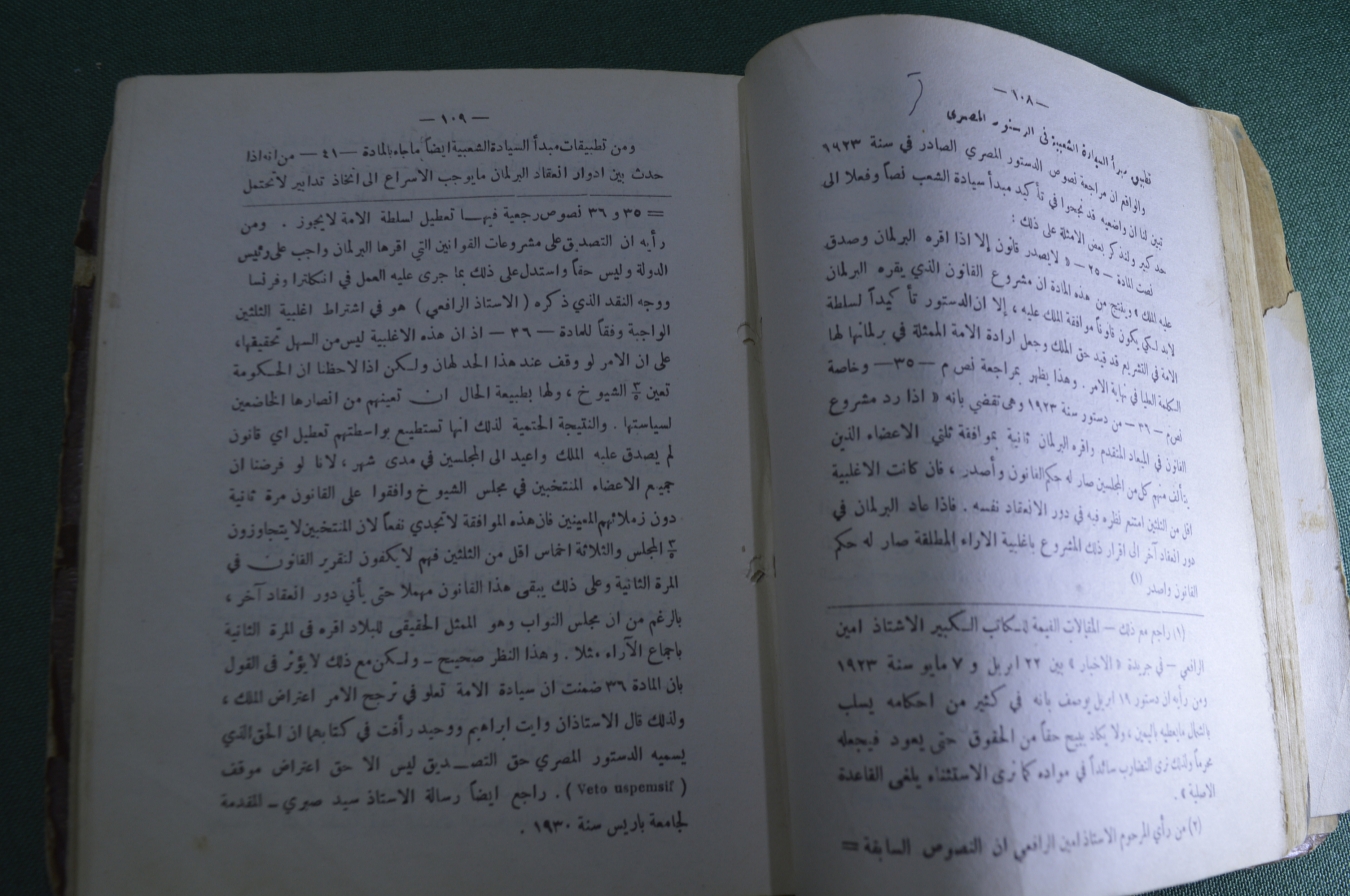 — ١٠٨ —
تطبيق مبدأ السيادة الشعبية فى الدستور المصرى
والواقع ان مراجعة نصوص الدستور المصري الصادر في سنة ١٩٢٣
تبين لنا ان واضعيه قد نجحوا في تأكيد مبدأ سيادة الشعب نصاً وفعلا الى
حد كبير ولنذكر بعض الامثلة على ذلك :
نصت المادة — ٢٥ — « لايصدر قانون إلا اذا اقره البرلمان وصدق
عليه الملك » وينتج من هذه المادة ان مشروع القانون الذي يقره البرلمان
لابد لكي يكون قانوناً موافقة الملك عليه ، إلا ان الدستور تأكيداً لسلطة
الامة في التشريع قد قيد حق الملك وجعل ارادة الامة الممثلة في برلمانها لها
الكلمة العليا في نهاية الامر . وهذا يظهر بمراجعة نص م — ٣٥ — وخاصة
نص م — ٣٦ — من دستور سنة ١٩٢٣ وهى تقضي بانه « اذا رد مشروع
القانون في الميعاد المتقدم واقره البرلمان ثانية بموافقة ثلثي الاعضاء الذين
يتألف منهم كل من المجلسين صار له حكم القانون وأصدر ، فان كانت الاغلبية
اقل من الثلثين امتنع نظره فيه في دور الانعقاد نفسه . فاذا عاد البرلمان في
دور انعقاد آخر الى اقرار ذلك المشروع باغلبية الاراء المطلقة صار له حكم
القانون واصدر (١)
(١) راجع مع ذلك — المقالات القيمة للكاتب الكبير الاستاذ امين
الرافعي — في جريدة « الاخبار » بين ٢٢ ابريل و ٧ مايو سنة ١٩٢٣
ومن رأيه ان دستور ١٩ ابريل يوصف بانه في كثير من احكامه يسلب
بالشمال مايعطيه باليمين ، ولا يكاد يبيح حقاً من الحقوق حتى يعود فيجعله
محرماً ولذلك ترى التضارب سائداً في مواده كما ترى الاستثناء يلغى القاعدة
الاصلية » .
(٢) من رأي المرحوم الاستاذ امين الرافعي ان النصوص السابقة =
— ١٠٩ —
ومن تطبيقات مبدأ السيادة الشعبية ايضاً ماجاء بالمادة — ٤١ — من انه اذا
حدث بين ادوار انعقاد البرلمان مايوجب الاسراع الى اتخاذ تدابير لاتحتمل
= ٣٥ و ٣٦ نصوص رجعية فيهـا تعطيل لسلطة الامة لايجوز . ومن
رأيه ان التصديق على مشروعات القوانين التي اقرها البرلمان واجب على رئيس
الدولة وليس حقاً واستدل على ذلك بما جرى عليه العمل في انكلترا وفرنسا
ووجه النقد الذي ذكره ( الاستاذ الرافعي ) هو في اشتراط اغلبية الثلثين
الواجبة وفقاً للمادة — ٣٦ — اذ ان هذه الاغلبية ليس من السهل تحقيقها،
على ان الامر لو وقف عند هذا الحد لهان ولكن اذا لاحظنا ان الحكومة
تعين ⅖ الشيوخ ، ولها بطبيعة الحال ان تعينهم من انصارها الخاضعين
لسياستها . والنتيجة الحتمية لذلك انها تستطيع بواسطتهم تعطيل اي قانون
لم يصدق عليه الملك واعيد الى المجلسين في مدى شهر ، لانا لو فرضنا ان
جميع الاعضاء المنتخبين في مجلس الشيوخ وافقوا على القانون مرة ثانية
دون زملائهم المعينين فان هذه الموافقة لاتجدي نفعاً لان المنتخبين لايتجاوزون
⅗ المجلس والثلاثة اخماس اقل من الثلثين فهم لايكفون لتقرير القانون في
المرة الثانية وعلى ذلك يبقى هذا القانون مهملا حتى يأتي دور انعقاد آخر ،
بالرغم من ان مجلس النواب وهو الممثل الحقيقى للبلاد اقره فى المرة الثانية
باجماع الآراء مثلا . وهذا النظر صحيح — ولكن مع ذلك لايؤثر فى القول
بان المادة ٣٦ ضمنت ان سيادة الامة تعلو في ترجح الامر اعتراض الملك ،
ولذلك قال الاستاذان وايت ابراهيم ووحيد رأفت في كتابهما ان الحق الذي
يسميه الدستور المصري حق التصـديق ليس الا حق اعتراض موقف
( Veto uspemsif ) . راجع ايضاً رسالة الاستاذ سيد صبري — المقدمة
لجامعة باريس سنة ١٩٣٠ .